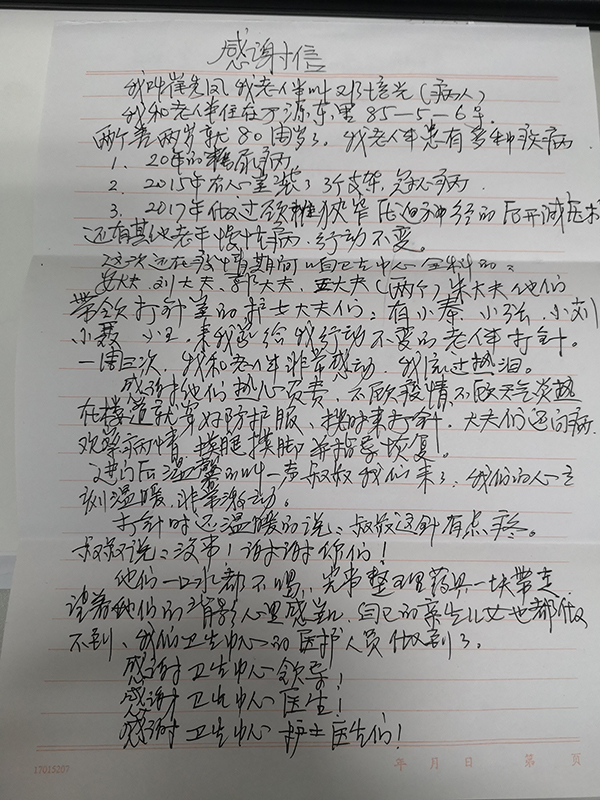 感谢信
我叫崔先凤 我老伴叫邓培光(病人)
我和老伴住在万源东里85-5-6号.
两个差两岁就80周岁了. 我老伴患有多种疾病
1. 20年的糖尿病.
2. 2015年 装了3个支架, 冠心病
3. 2017年做过颈椎狭窄压迫神经的后开减压术
还有其他老年慢性病. 行动不变。
这次还在疫情期间 咱卫生中心全科的:
大夫. 刘大夫、郭大夫、王大夫(两个)朱大夫他们
带领打针 的护士大夫们: 有小秦 小张、小刘
小聂 小王, 来我家给我行动不变的老伴打针。
一周三次, 我和老伴非常感动. 我流过热泪。
感谢他们热心负责, 不顾疫情, 不顾天气炎热
在楼道就穿好防护服、按时来打针. 大夫们还问病
观察病情. 摸腿摸脚并指导恢复。
进门后温馨的叫一声叔叔我们来了, 我们的心立
刻温暖. 非常激动。
打针时还温暖的说: 叔叔这针有点疼。
叔叔说: 没事! 谢谢你们!
他们一口水都不喝, 完事整理药具一块带走.
望着他们的背影心里感到, 自己的亲生儿女也都做
不到、我们卫生中心的医护人员做到了。
感谢卫生中心领导!
感谢卫生中心医生!
感谢卫生中心护士医生们!
17015207
年 月 日 第 页